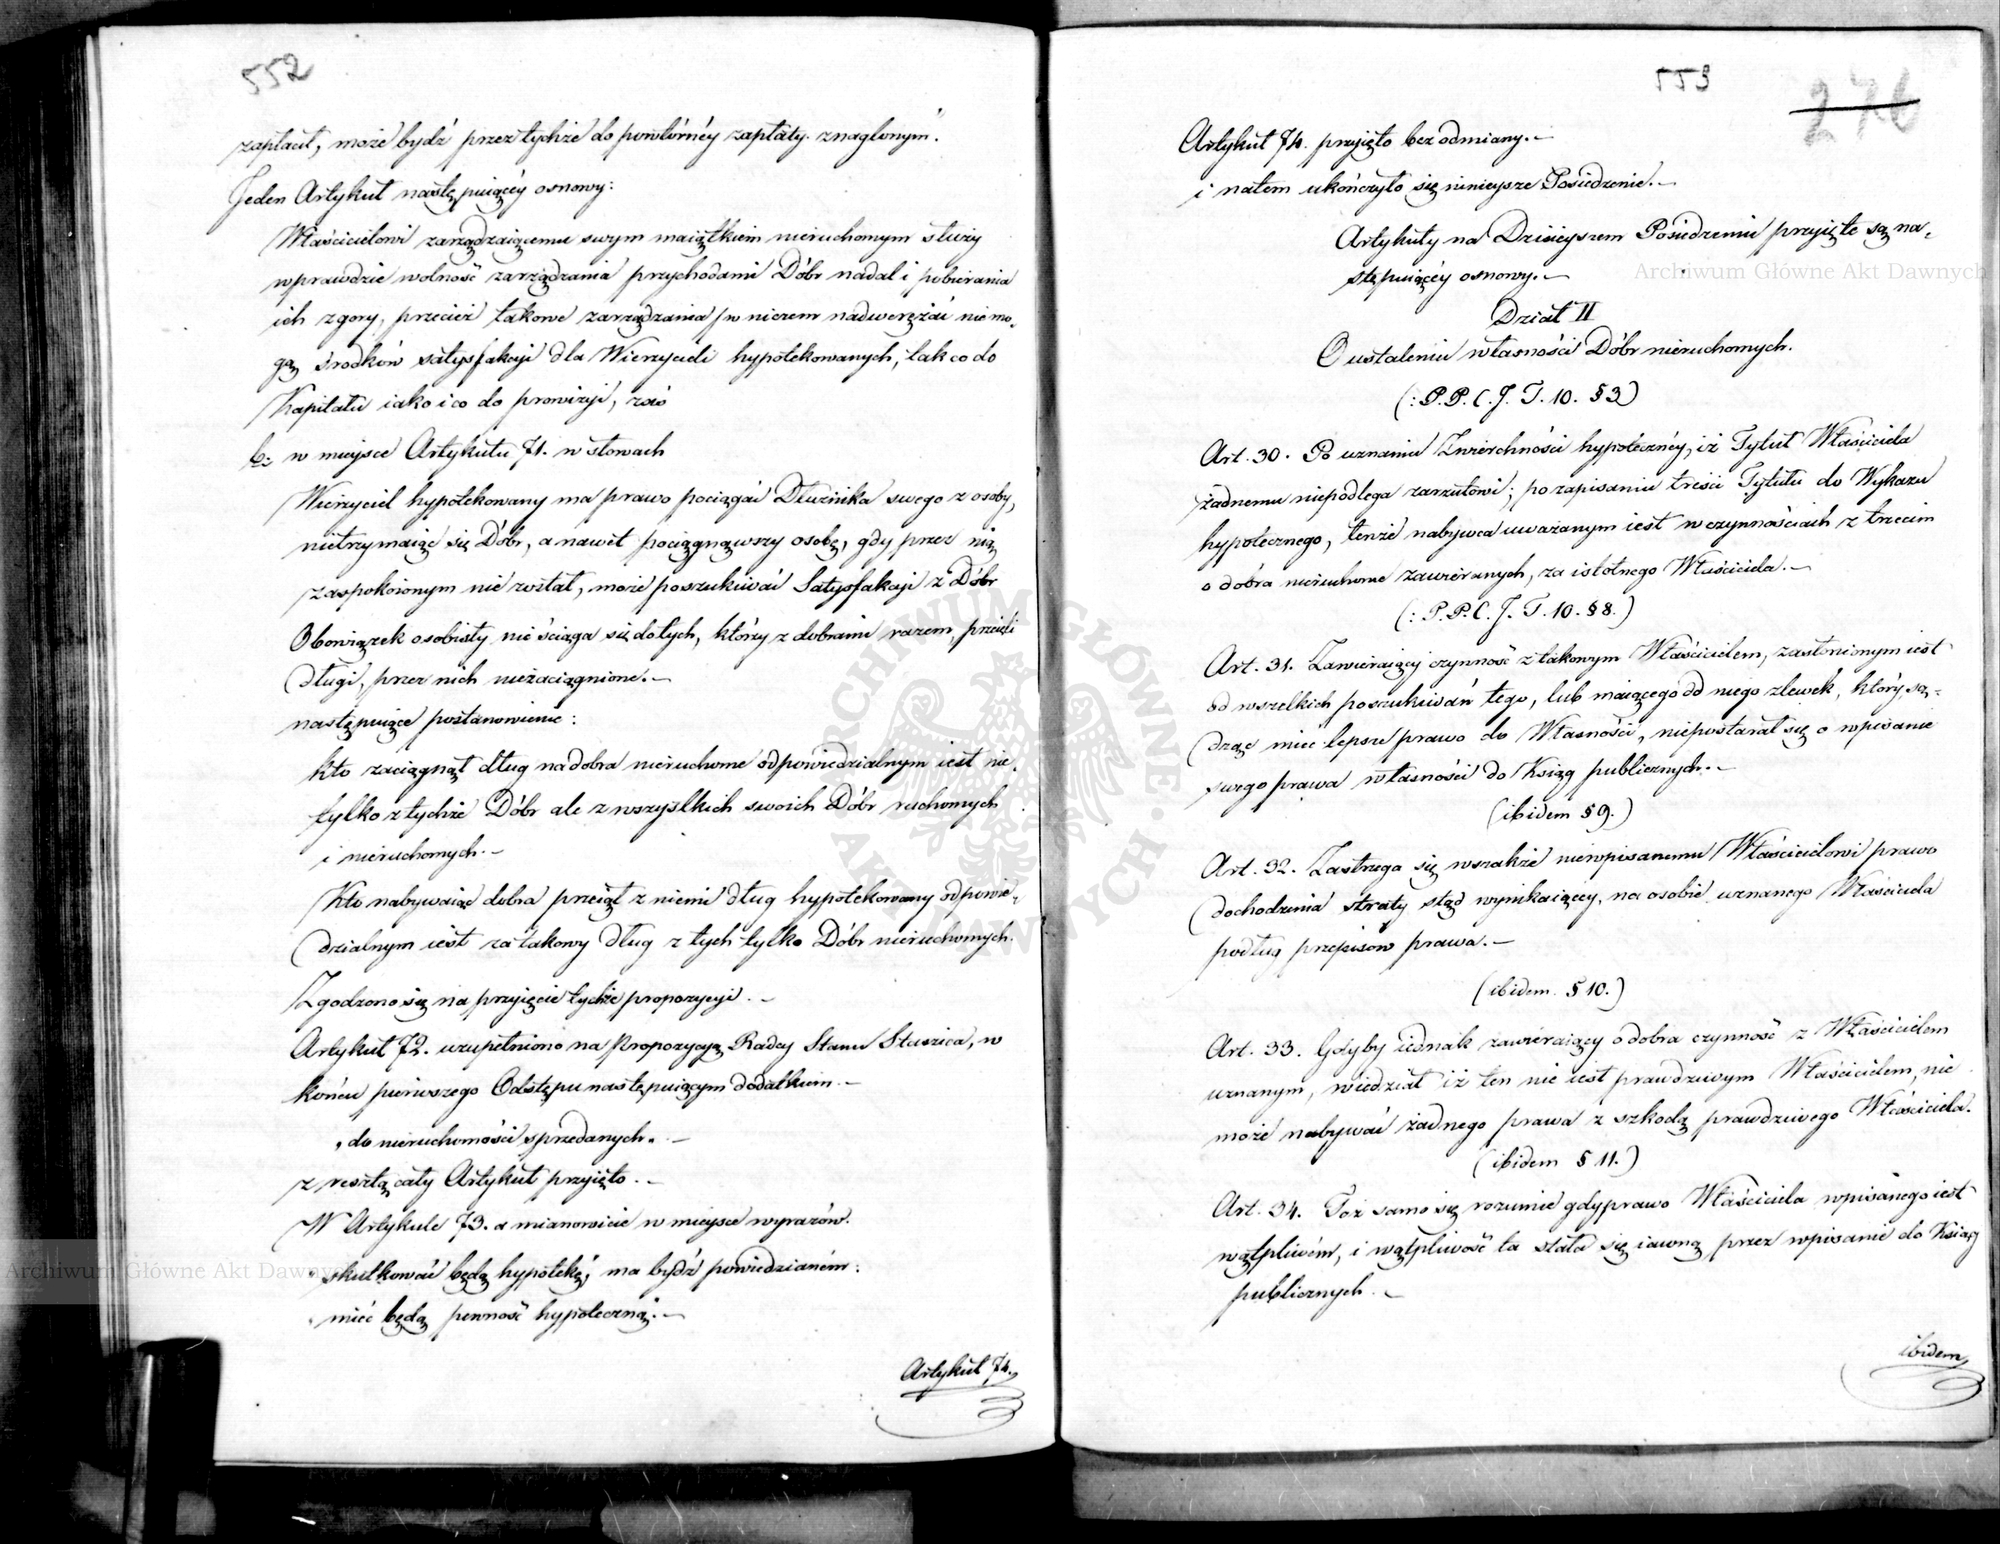 552
zapłacił, może bydź przez tychże do powtórnéy zapłaty znaglonym".
Jeden Artykuł następuiącéy osnowy:
Właścicielowi zarządzaiącemu swym maiątkiem nieruchomym służy
wprawdzie wolność zarządzania przychodami Dóbr nadal i pobierania
ich z gory, przecież takowe zarządzania w niczem nadwerężać nie mo-
gą środków satysfakcyi dla Wierzycieli hypotekowanych, tak co do
Kapitału iako i co do prowizyi, zaś
b: w mieysce Artykułu 71. w słowach
Wierzyciel hypotekowany ma prawo pociągać Dłużnika swego z osoby,
nietrzymaiąc się Dóbr, a nawet pociągnąwszy osobę, gdy przez nią
zaspokoionym nie został, może poszukiwać Satysfakcyi z Dóbr
Obowiązek osobisty nie ściąga się do tych, którzy z dobrami razem, przeięli
długi, przez nich niezaciągnione.—
następuiące postanowienie:
kto zaciągnął dług na dobra nieruchome odpowiedzialnym iest nie-
tylko z tychże Dóbr ale z wszystkich swoich Dóbr ruchomych
i nieruchomych.—
Kto nabywaiąc dobra przeiął z niemi dług hypotekowany odpowie-
dzialnym iest za takowy dług z tych tylko Dóbr nieruchomych.
Zgodzono się na przyięcie tychże propozycyi.—
Artykuł 72. uzupełniono na Propozycyą Radcy Stanu Staszica, w
końcu pierwszego Odstępu następuiącym dodatkiem.—
„do nieruchomości sprzedanych„ —
z resztą cały Artykuł przyięto.—
W Artykule 73. a mianowicie w mieysce wyrazów.
skutkować będą hypotekę, ma bydź powiedzianém:
„mieć będą pewność hypoteczną„.—
Artykuł 74.
553
276
Artykuł 74. przyięto bez odmiany.—
i natem ukończyło się ninieysze Posiedzenie.—
Artykuły na Dzisieyszem Posiedzeniu przyięte są na-
stępuiącéy osnowy.—
Dział II
O ustaleniu własności Dóbr nieruchomych.
(: P.P.C.J. T. 10. § 3)
Art. 30. Po uznaniu Zwierchności hypotecznéy, iż Tytuł Właściciela
żadnemu niepodlega zarzutowi; po zapisaniu treści Tytułu do Wykazu
hypotecznego, tenże nabywca uważanym iest w czynnościach z trzecim
o dobra nieruchome zawieranych, za istotnego Właściciela.—
(: P.P.C.J. T. 10. § 8.)
Art. 31. Zawieraiący czynność z takowym Właścicielem, zasłonionym iest
od wszelkich poszukiwań tego, lub maiącego od niego zlewek, który, są-
dząc mieć lepsze prawo do Własności, niepostarał się o wpisanie
swego prawa własności do Ksiąg publicznych.—
(ibidem § 9.)
Art. 32. Zastrzega się wszakże niewpisanemu Właścicielowi prawo
dochodzenia straty stąd wynikaiącey, na osobie uznanego Właściciela
podług przepisow prawa.—
(ibidem. § 10.)
Art. 33. Gdyby iednak zawieraiący o dobra czynność z Właścicielem
uznanym, wiedział iż ten nie iest prawdziwym Właścicielem, nie
może nabywać żadnego prawa z szkodą prawdziwego Właściciela.
(ibidem § 11.)
Art. 34. Toż samo się rozumie gdy prawo Właściciela wpisanego iest
wątpliwém, i wątpliwość ta stała się iawną przez wpisanie do Ksiąg
publicznych.—
ibidem
Archiwum Główne Akt Dawnych
Archiwum Główne Akt Dawnych
ARCHIWUM GŁÓWNE AKT DAWNYCH